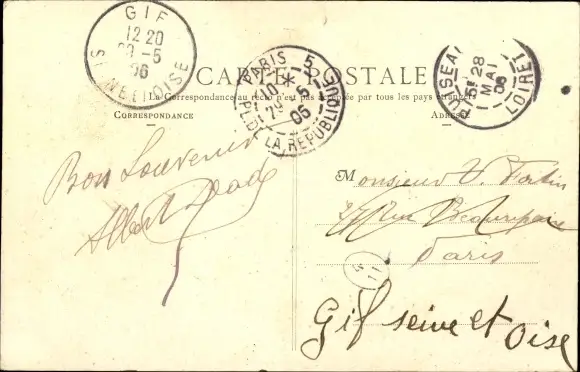 GIF
12 20
-5
06
SEINE ET OISE
PARIS
5
10
-5
06
PL. DE LA RÉPUBLIQUE
5E 28
1 MAI
06
LOIRET
CARTE POSTALE
La Correspondance au recto n'est pas acceptée par tous les pays étrangers
CORRESPONDANCE
ADRESSE
Bon Souvenir
Albert
Monsieur V.
27 Rue Beaurepaire
Paris
Gif seine et Oise